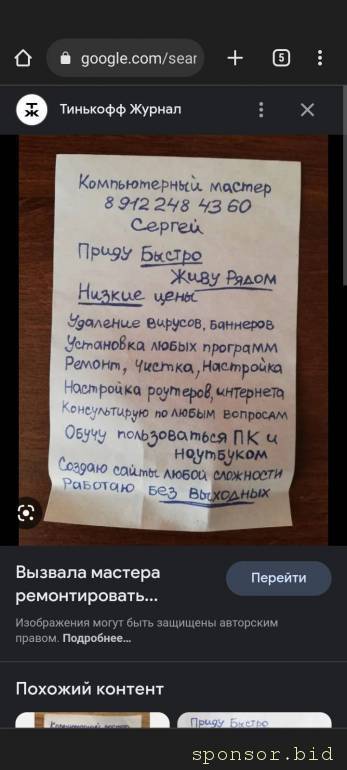 google.com/sear
5
ТЖ
Тинькофф Журнал
Компьютерный мастер
8 912 248 43 60
Сергей
Приду Быстро
Живу Рядом
Низкие цены
Удаление вирусов, баннеров
Установка любых программ
Ремонт, Чистка, Настройка
Настройка роутеров, интернета
Консультирую по любым вопросам
Обучу пользоваться ПК и
ноутбуком
Создаю сайты любой сложности
Работаю без выходных
Вызвала мастера
ремонтировать...
Перейти
Изображения могут быть защищены авторским
правом. Подробнее...
Похожий контент
Компьютерный мастер
Приду Быстро
sponsor.bid